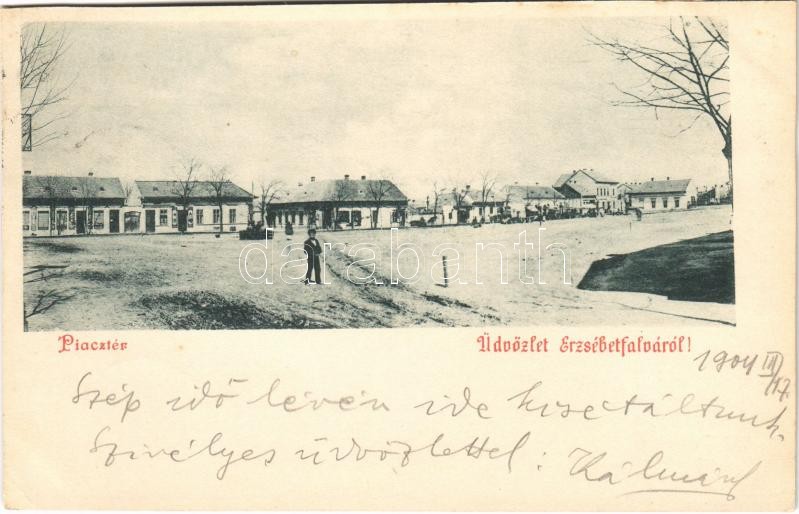 darabanth
Piacztér
Üdvözlet Erzsébetfalváról!
1904 III/17
Szép idő lévén ide kisétáltunk.
Szivélyes üdvözlettel: Kálmán